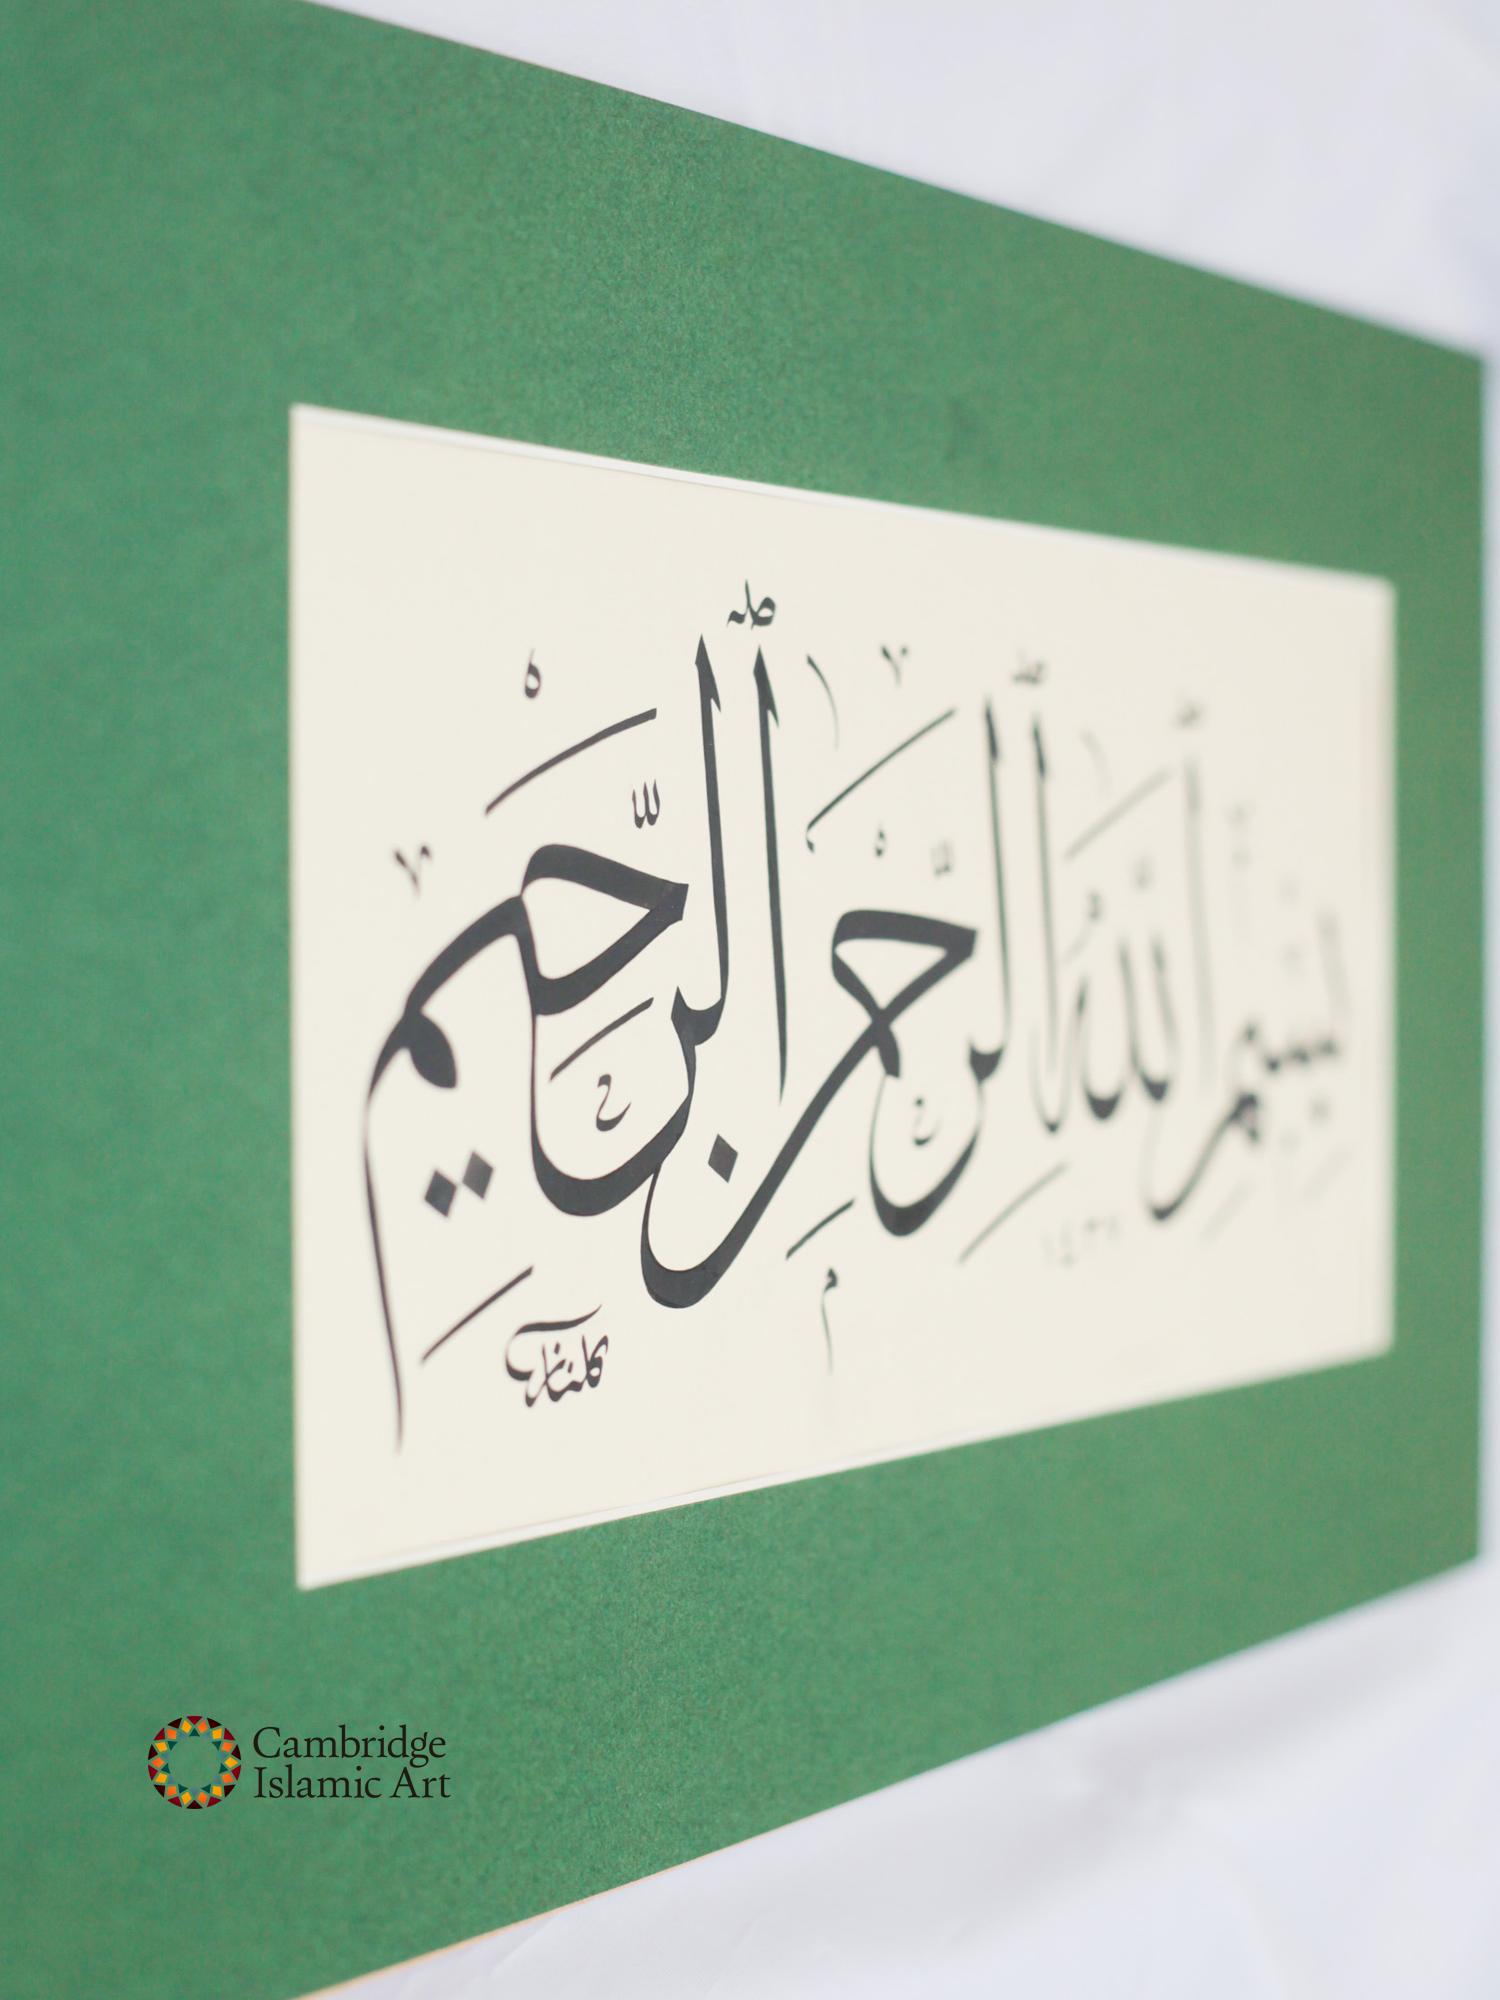 بِسْمِ اللّٰهِ الرَّحْمٰنِ الرَّحِيمِ
Cambridge
Islamic Art